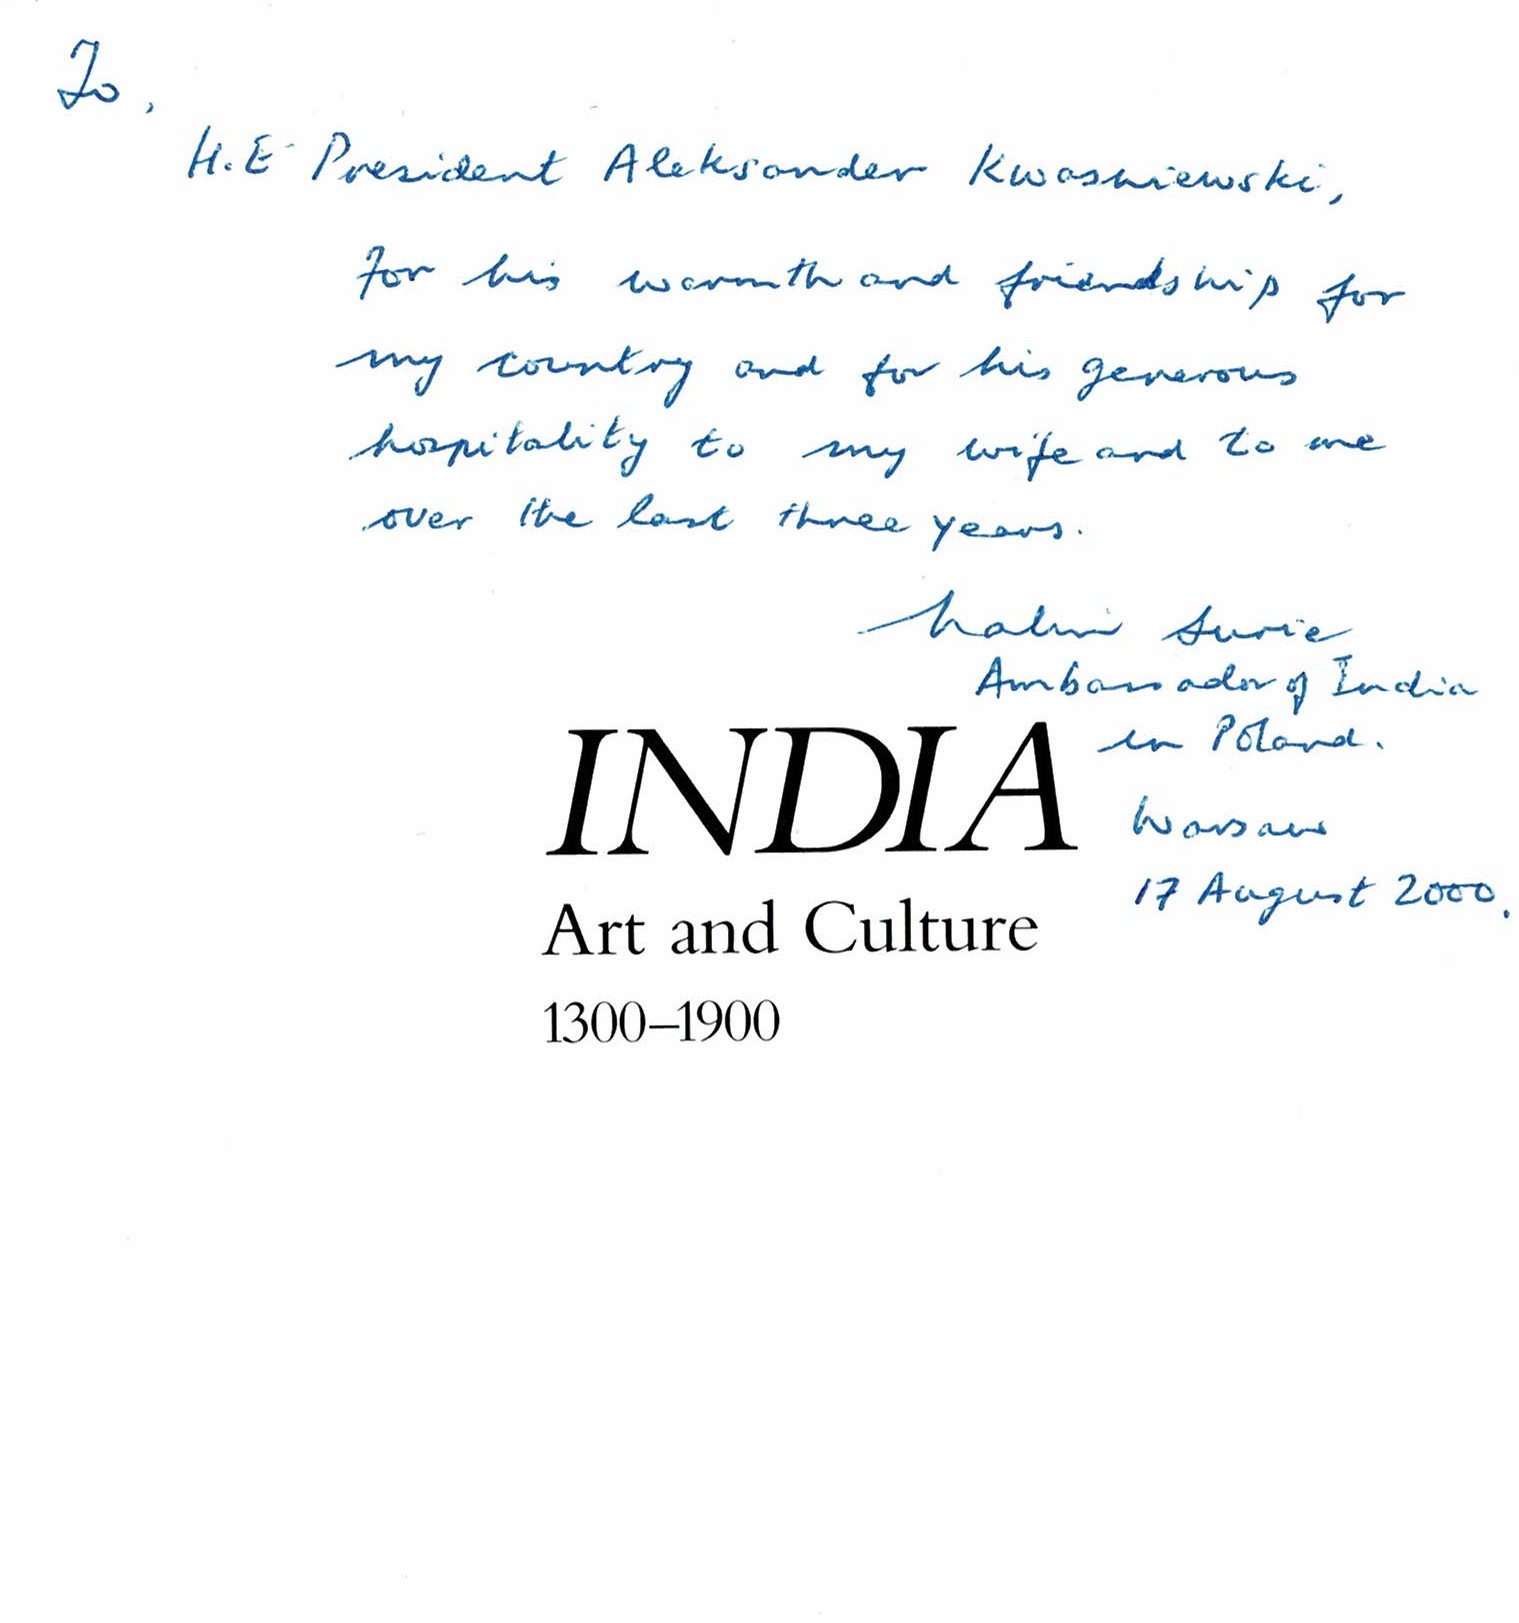 To,
H.E. President Aleksander Kwasniewski,
For his warmth and friendship for
my country and for his generous
hospitality to my wife and to me
over the last three years.
Nalin Surie
Ambassador of India
in Poland.
Warsaw
17 August 2000.
INDIA
Art and Culture
1300–1900